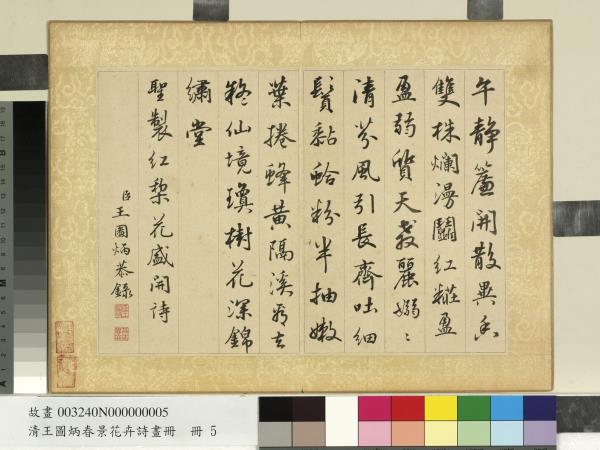 午靜簾開散異香
雙株爛漫鬪紅糚盈
盈弱質天教麗嫋〻
清芬風引長齊吐細
鬚黏蛤粉半抽嫩
葉捲蜂黃隔溪看去
疑仙境瓊樹花深錦
繡堂
聖製紅梨花盛開詩
臣王圖炳恭錄
故畫 003240N000000005
清王圖炳春景花卉詩畫冊 冊 5